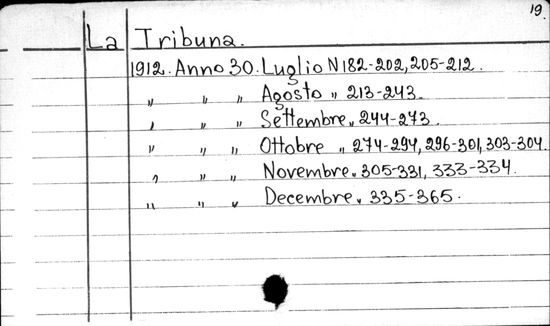 19.
La Tribuna.
1912. Anno 30. Luglio N 182-202, 205-212.
" " " Agosto " 213-243.
" " " Settembre " 244-273.
" " " Ottobre " 274-294, 296-301, 303-304.
" " " Novembre " 305-331, 333-334.
" " " Decembre " 335-365.